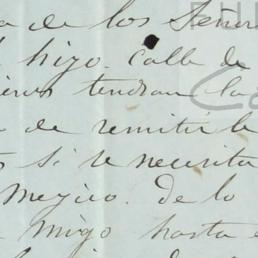 a de los Señor
hijo. Calle de
tendran la
a de remitirle
si se necesita
Mexico. de lo
Migo hasta e